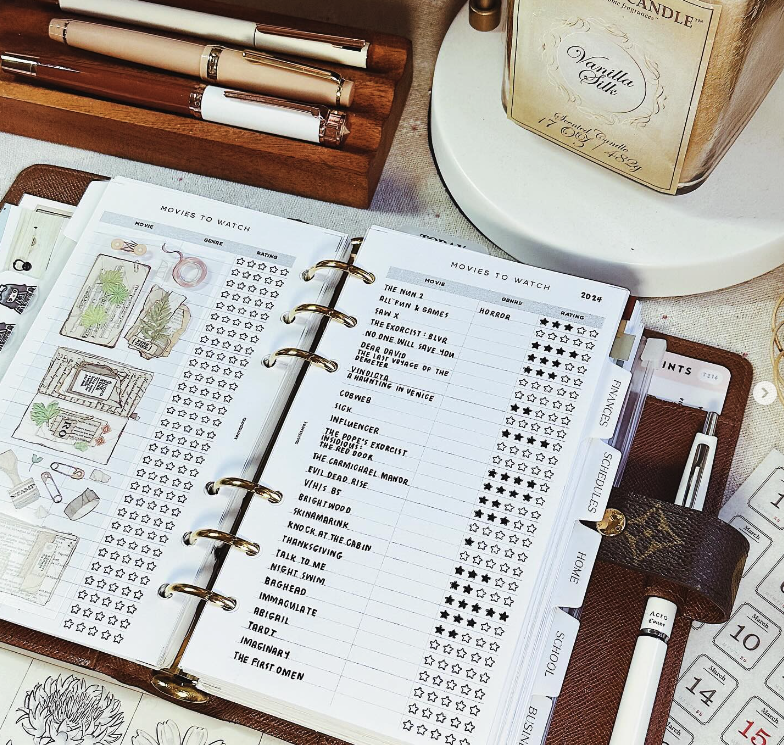 CANDLE™
home fragrances
Vanilla
Silk
Scented Candle
17 OZ / 482g
MOVIES TO WATCH
MOVIE GENRE RATING
STAMP
MOVIES TO WATCH
2024
MOVIE GENRE RATING
THE NUN 2 HORROR
ALL FUN & GAMES
SAW X
THE EXORCIST: BLVR
NO ONE WILL SAVE YOU
DEAR DAVID
THE LAST VOYAGE OF THE
DEMETER
VINDICTA
A HAUNTING IN VENICE
COBWEB
SICK
INFLUENCER
THE POPE'S EXORCIST
INSIDIOUS:
THE RED DOOR
THE CARMICHAEL MANOR
EVIL DEAD RISE
V/H/S 85
BRIGHTWOOD
SKINAMARINK
KNOCK AT THE CABIN
THANKSGIVING
TALK TO ME
NIGHT SWIM
BAGHEAD
IMMACULATE
ABIGAIL
TAROT
IMAGINARY
THE FIRST OMEN
FINANCES
SCHEDULES
HOME
SCHOOL
BUSIN
INTS
LV
March
March
March
10
March
14
March
15